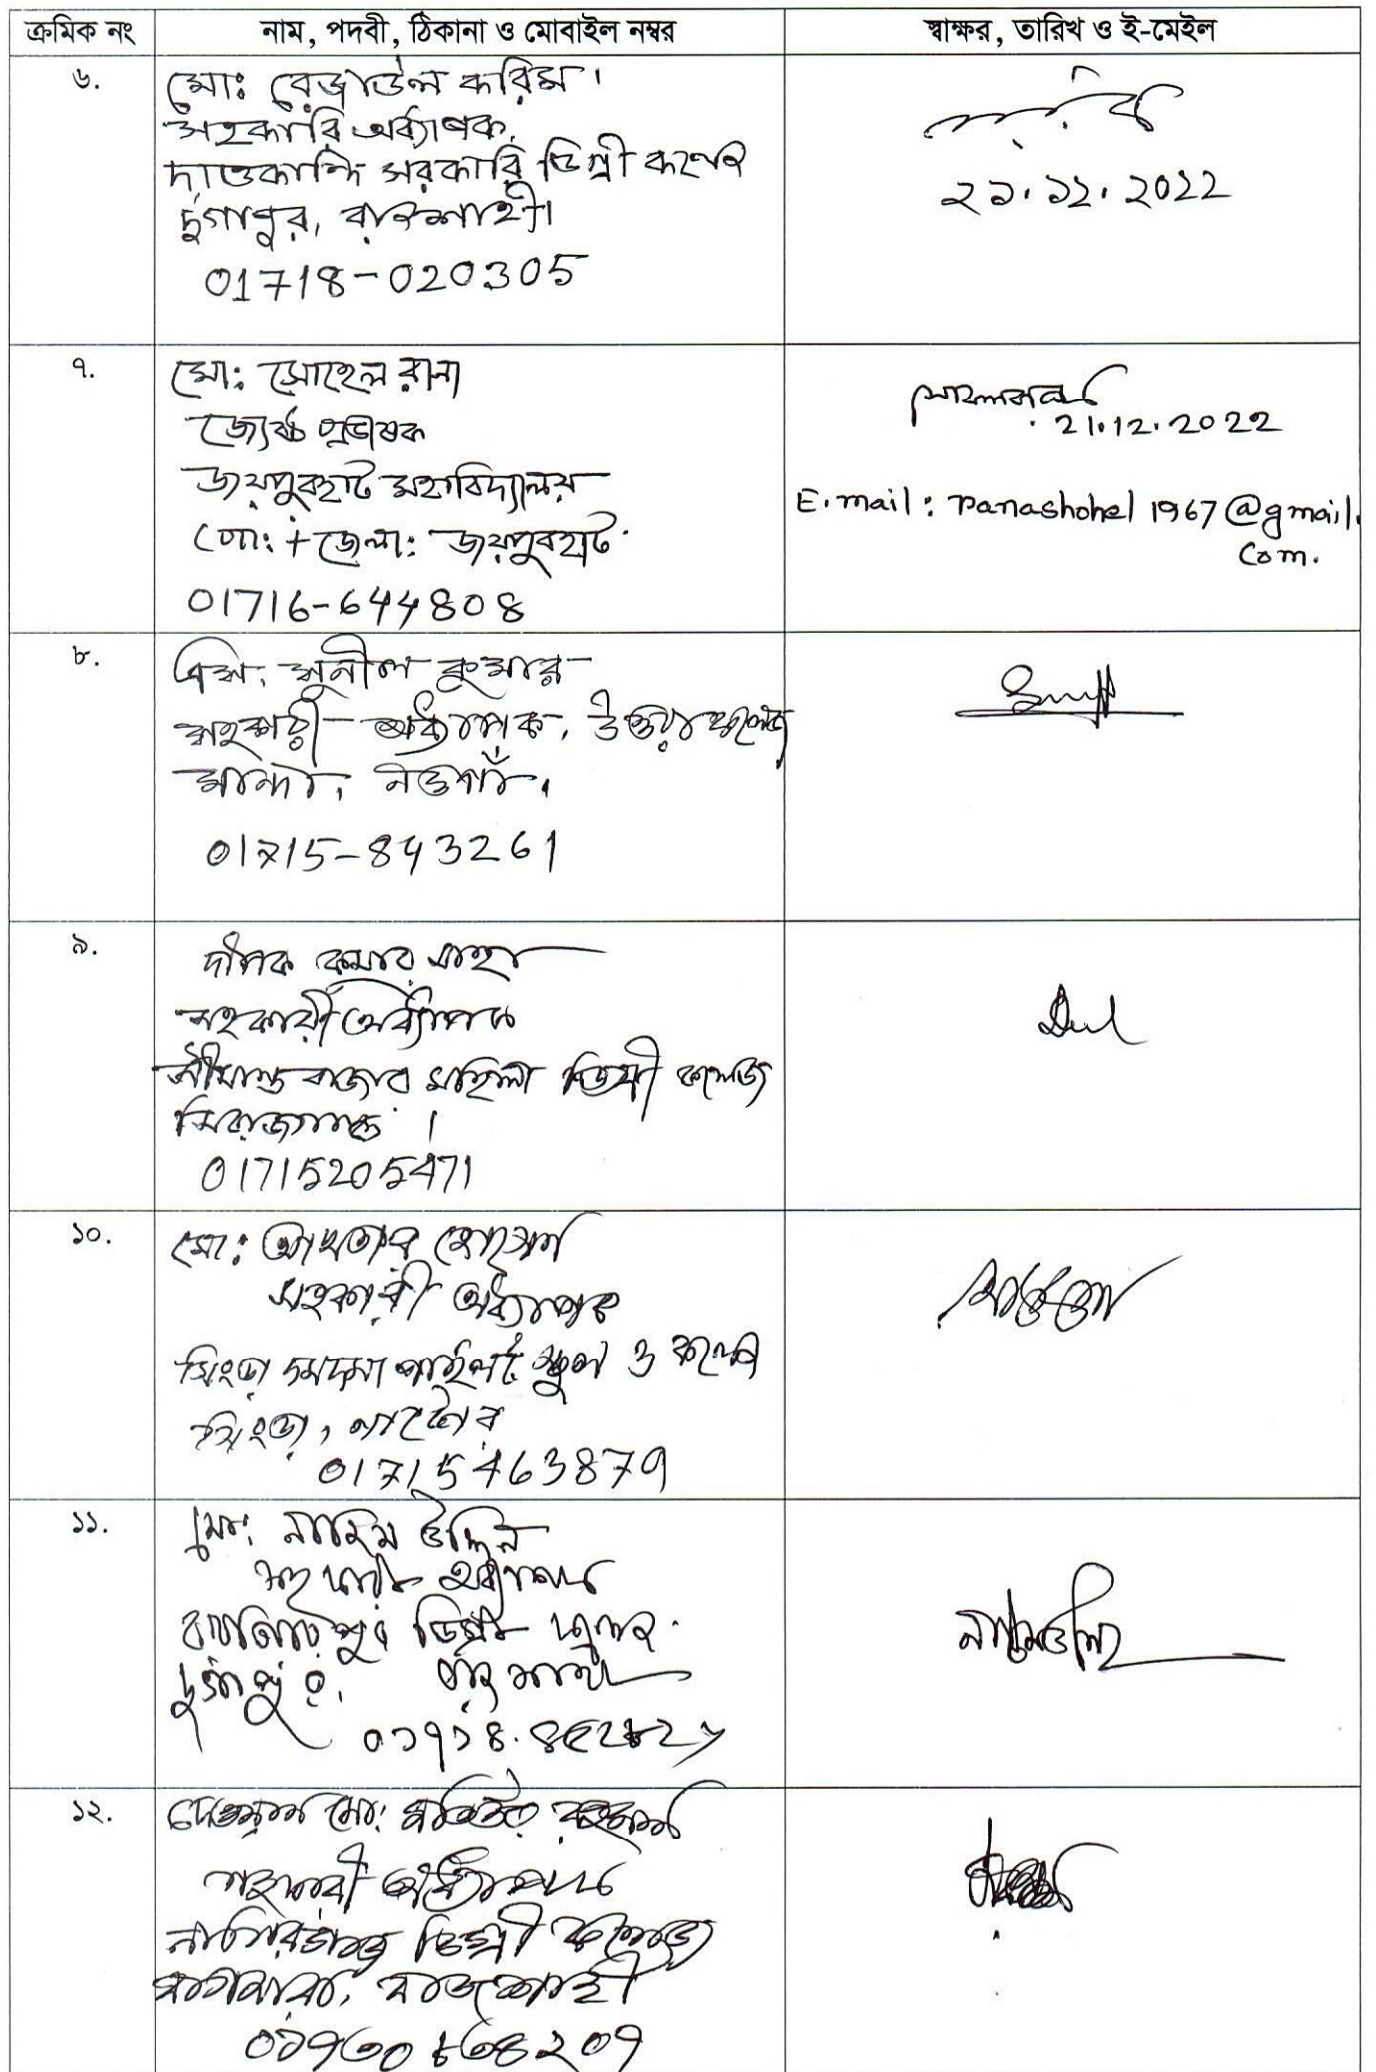 ক্রমিক নং নাম, পদবী, ঠিকানা ও মোবাইল নম্বর স্বাক্ষর, তারিখ ও ই-মেইল
৬.
মোঃ রেজাউল করিম।
সহকারি অধ্যাপক,
দাওকান্দি সরকারি ডিগ্রী কলেজ
দুর্গাপুর, রাজশাহী।
01718-020305
২১.১২.২০২২
৭.
মো: সোহেল রানা
জ্যেষ্ঠ প্রভাষক
জয়পুরহাট মহাবিদ্যালয়
পো: + জেলা: জয়পুরহাট
01716-644808
21.12.2022
E.mail: ranashohel1967@gmail.
com.
৮.
এস. সুনীল কুমার
সহকারী অধ্যাপক, উত্তরা কলেজ
মান্দা, নওগাঁ।
01715-843261
৯.
দীপক কুমার সাহা
সহকারী অধ্যাপক
সীমান্ত বাজার মহিলা ডিগ্রী কলেজ
সিরাজগঞ্জ।
01715205471
১০.
মো: আখতার হোসেন
সহকারী অধ্যাপক
সিংড়া দমদমা পাইলট স্কুল ও কলেজ
সিংড়া, নাটোর
01715463879
১১.
মো: নাইম উদ্দিন
সহকারী অধ্যাপক
ডিগ্রী কলেজ
দুর্গাপুর, রাজশাহী
১২.
দেওয়ান মো:
সহকারী অধ্যাপক
ডিগ্রী কলেজ
বাগমারা, রাজশাহী